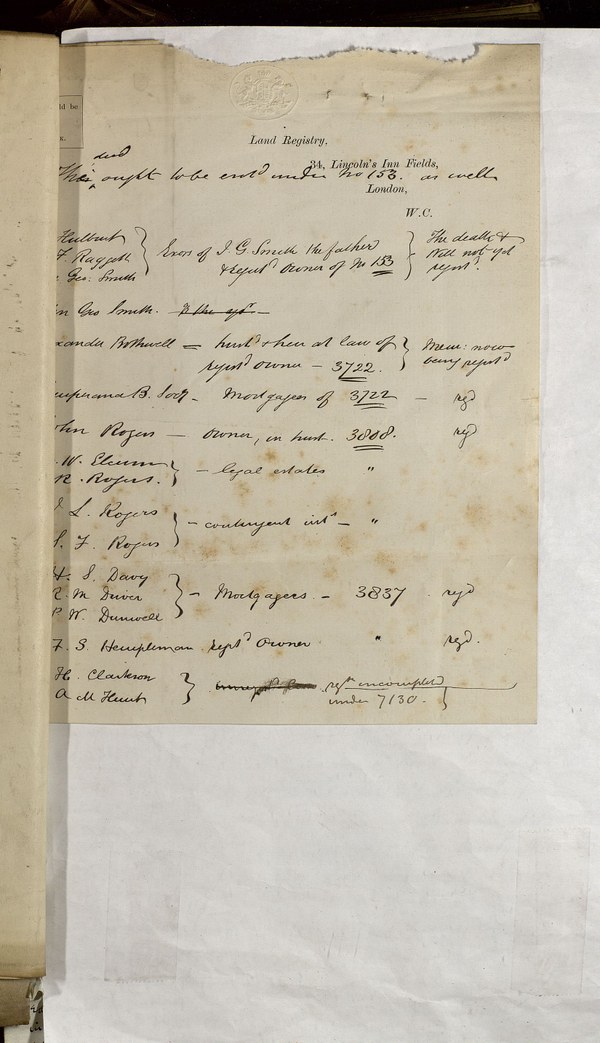 ld be
Land Registry,
34, Lincoln's Inn Fields,
deed
This ought to be entd under No 153. as well
London,
W.C.
Hulbert
F Raggett
Geo. Smith
Exors of J. G. Smith the father
& regist^d owner of No 153
The death &
Will not yet
regist^d.
n Geo Smith.
xander Bothwell = husb^d & heir at law of
regist^d owner – 3722.
Mem: now
being regist^d
B. – Mortgagees of 3722 – reg^d
ohn Rogers – owner, in trust. 3808. reg^d
W. Elcum
R. Rogers.
– legal estates "
L. Rogers
S. F. Rogers
– contingent int^s – "
H. S. Davy
R. M Driver
P W. Dunwell
– Mortgagees – 3837 reg^d
F. S. Hempleman regist^d owner " reg^d.
H. Clarkson
A M Hunt
reg^n incompleted
under 7130.